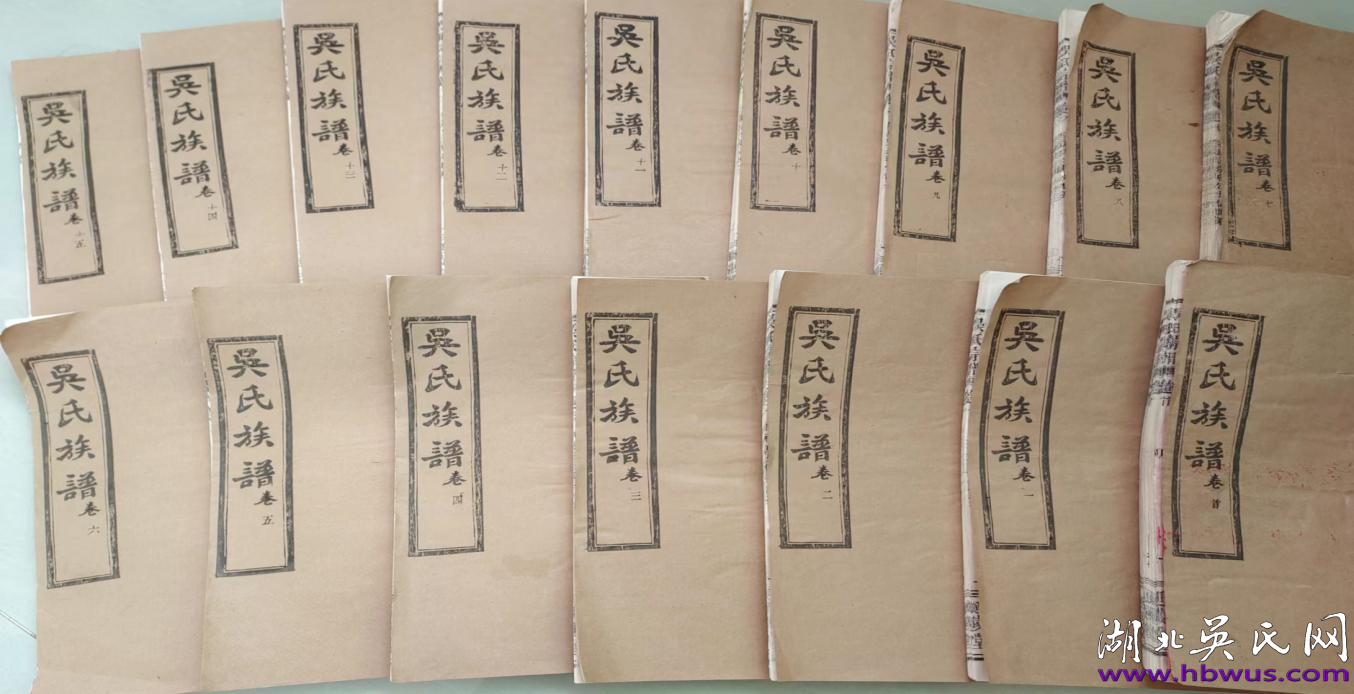 吳氏族譜卷十五
吳氏族譜卷十四
吳氏族譜卷十三
吳氏族譜卷十二
吳氏族譜卷十一
吳氏族譜卷十
吳氏族譜卷九
吳氏族譜卷八
吳氏族譜卷七
吳氏族譜卷六
吳氏族譜卷五
吳氏族譜卷四
吳氏族譜卷三
吳氏族譜卷二
吳氏族譜卷一
吳氏族譜卷首
湖北吳氏网
www.hbwus.com